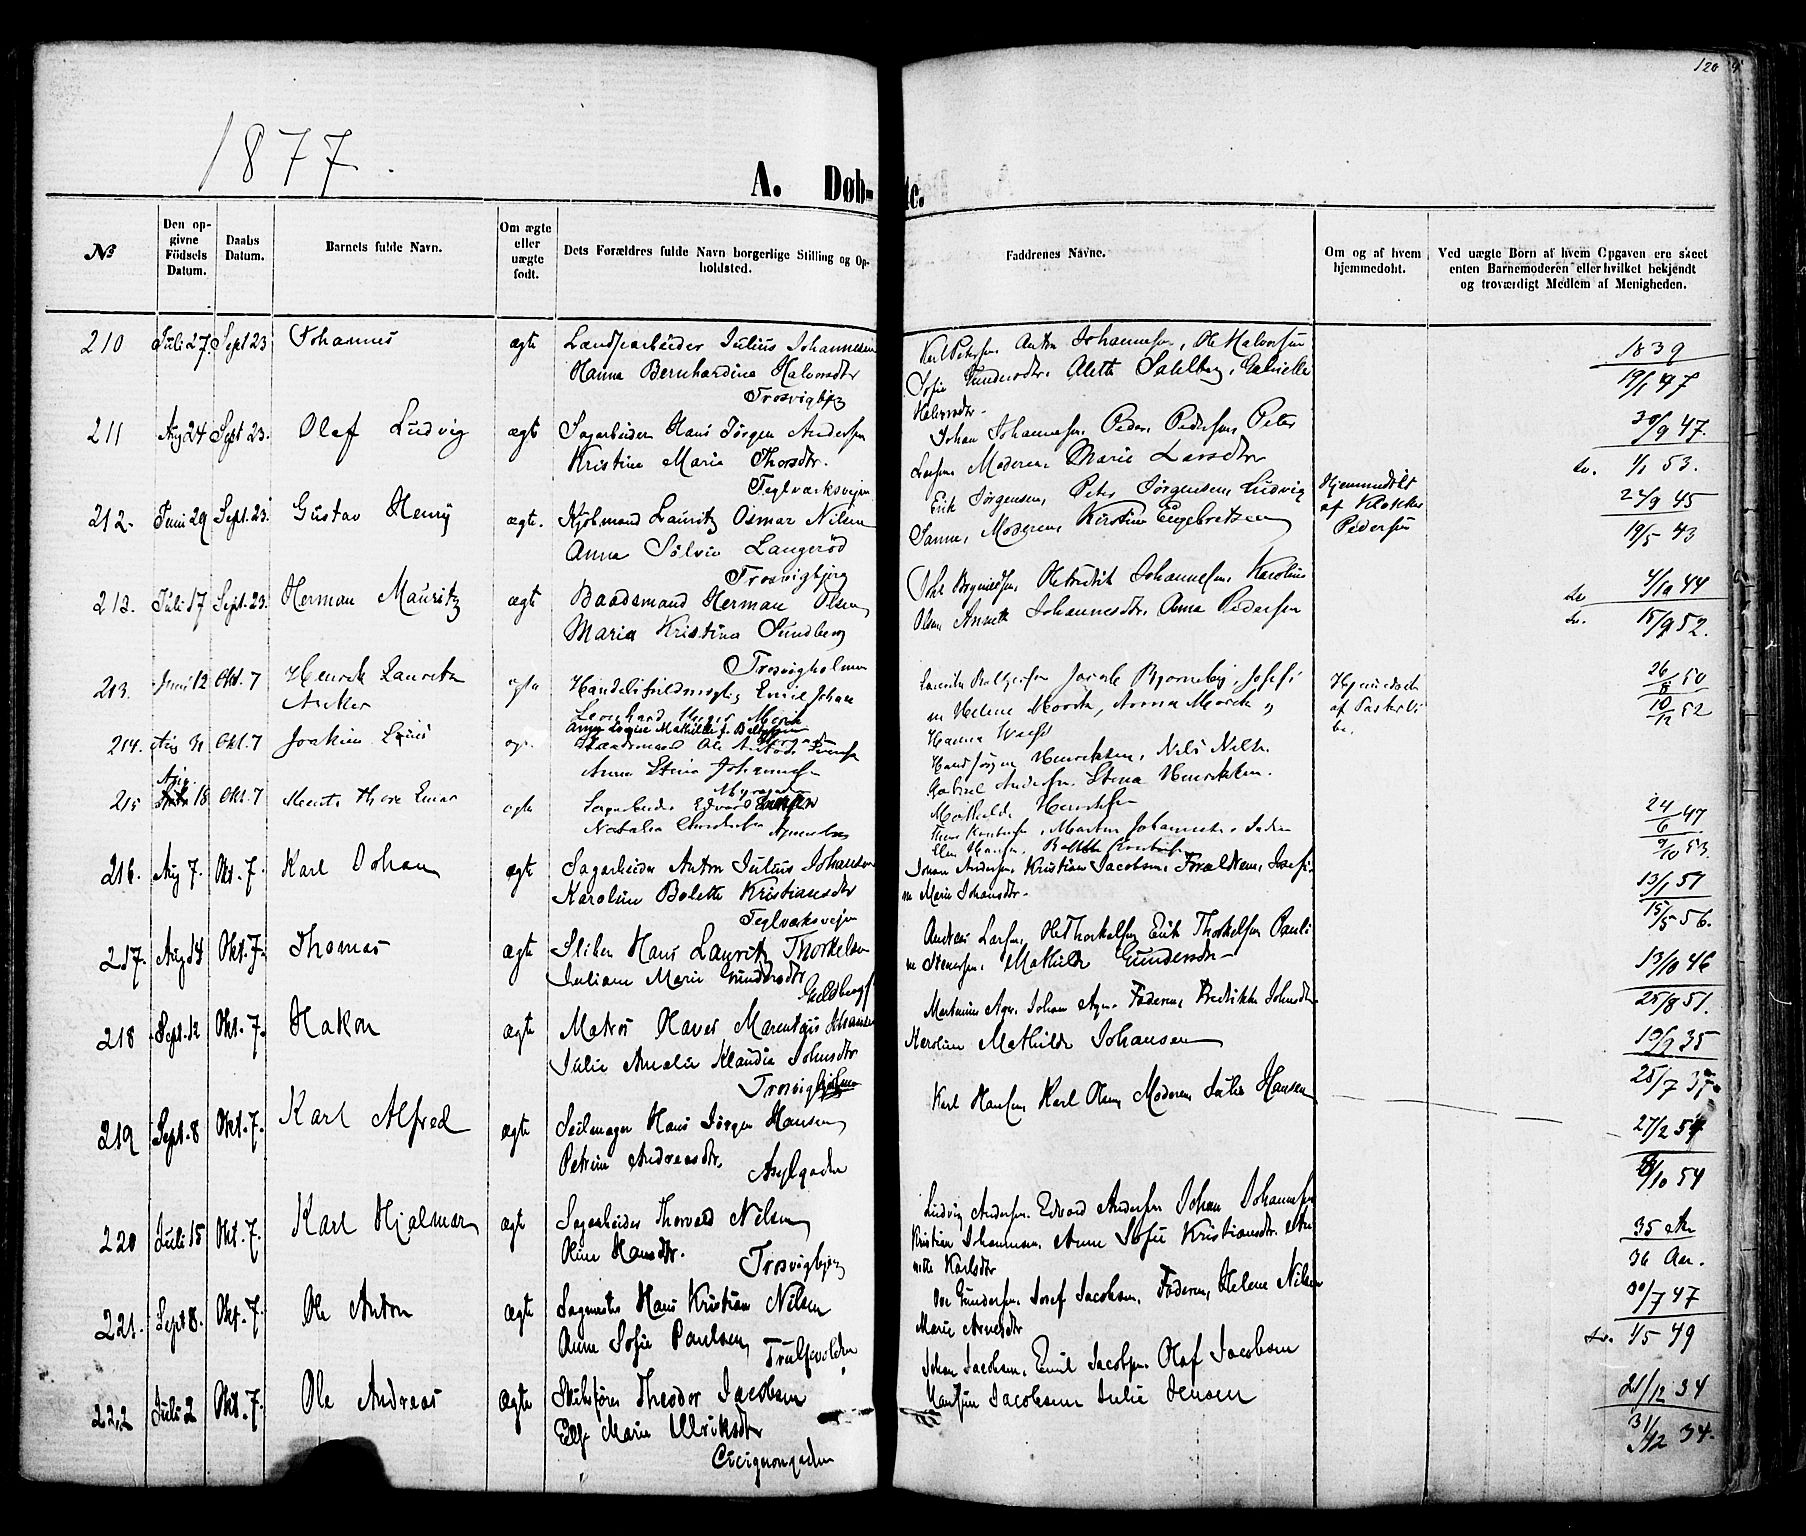 120
1877.
A. Døb-
te.
№
Den op-
givne
Födsels
Datum.
Daabs
Datum.
Barnets fulde Navn.
Om ægte
eller
uægte
født.
Dets Forældres fulde Navn borgerlige Stilling og Op-
holdsted.
Faddrenes Navne.
Om og af hvem
hjemmedøbt.
Ved uægte Born af hvem Opgaven ere skeet
enten Barnemoderen eller hvilket bekjendt
og troværdigt Medlem af Menigheden.
210 Juli 27. Sept 23 Johannes ægte Landsarbeider Julius Johannesen
Hanna Bernhardine Halvorsdtr
Trosvigbjerg
Karl Petersen Anton Johannesen, Ole Halvorsen
Sofie Gundersdtr. Alette Sahlberg,
Halvorsdtr.
1839
19/1 47
211 Aug 24 Sept 23. Olaf Ludvig ægte Sagarbeider Hans Jørgen Andersen
Kristine Marie Thorsdtr.
Teglværksvejen
Johan Johannesen Peder Pedersen Peter
Larsen Moderen Marie Larsdtr
30/9 47.
1/1 53.
212. Juni 29 Sept. 23. Gustav Henry ægte. Kjøbmand Lauritz Osmar Nilsen
Anna Sølvie Langerød
Trosvigbjerg
Erik Jørgensen, Peter Jørgensen, Ludvig
Sanne, Moderen, Kirstine Engebretsen
Hjemmedøbt
af Klokker
Pedersen
24/9 45
19/5 43
213. Juli 17 Sept. 23. Herman Mauritz ægte Baadsmand Herman Olsen
Maria Kristina Sundberg
Trosvigholmen
Johannesen, Karolius
Olsen Annette Johannesdtr. Anna Pedersen
4/10 44
15/9 52.
213. Juni 12 Okt. 7 Henrik Lauritz
Anker
ægte Handelsfuldmægtig Emil Johan
Leonhard
Jacob Bjørneby, Josefi-
ne Helene Morck, Anna Morck
Hanna
Hjemmedøbt
af Pastor
26/8 50
10/12 52
214. Aug 31 Okt. 7 Joakim Lauis
Anna Stina Johannesen
Hans Jørgen Henriksen, Nils Nilsen
Gabriel Andersen, Stena Henriksen.
Mathilde Henriksen
215 Aug. 18 Okt. 7 Thore Einar ægte Sagarbeider Edvard
Natalia
Martin Johannesen
24/6 47
9/10 53.
216. Aug 7. Okt. 7. Karl Johan ægte Sagarbeider Anton Julius Johansen
Karoline Bolette Kristiansdtr
Teglværksvejen
Johan Andersen, Kristian Jacobsen, Forældrene, Josefi-
ne Marie Johansdtr.
13/1 51
15/5 56.
217. Aug 14 Okt. 7. Thomas ægte Sliber Hans Lauritz Thorkelsen
Juliane Marie Gundersdtr
Guldbergs
Andreas Larsen, Ole Thorkelsen Erik Thorkelsen Pauli-
ne Stenersen, Mathilde Gundersdtr
13/10 46
25/8 51.
218 Sept. 12 Okt. 7. Hakon ægte Matros Haver Marentius Johansen
Julie Amalie Klaudia Johnsdtr
Trosvigholmen
Martinius Johan Faderen, Fredrikke Johnsdtr.
Karoline Mathilde Johansen
10/7 35
25/7 37
219 Sept. 8 Okt. 7. Karl Alfred ægte Seilmager Hans Jørgen Hansen
Petrine Andreasdtr.
Asylgaden
Karl Hansen Karl Olsen, Moderen Julie Hansen
27/2 54
8/10 54
220 Juli 15 Okt. 7. Karl Hjalmar ægte Sagarbeider Thorvald Nilsen
Oline Hansdtr.
Trosvigbjerg
Ludvig Andersen, Edvard Andersen Johan Johannesen
Kristian Johannesen, Anne Sofie Kristiansdtr. An-
nette Karlsdtr
35 Aar
36 Aar.
221. Sept 8. Okt. 7. Ole Anton ægte Sagmester Hans Kristian Nilsen
Anne Sofie Paulsen
Trulsevolden
Ove Gundersen, Josef Jacobsen, Faderen, Helene Nilsen
Marie Arnesdtr
30/7 47
1/5 49
222 Juli 2 Okt. 7. Ole Andreas ægte Skibsfører Theodor Jacobsen
Else Marie Ulriksdtr
Cicignongaden
Johan Jacobsen, Emil Jacobsen Olaf Jacobsen
Jacobsen Julie Jensen
21/12 34
31/12 34.